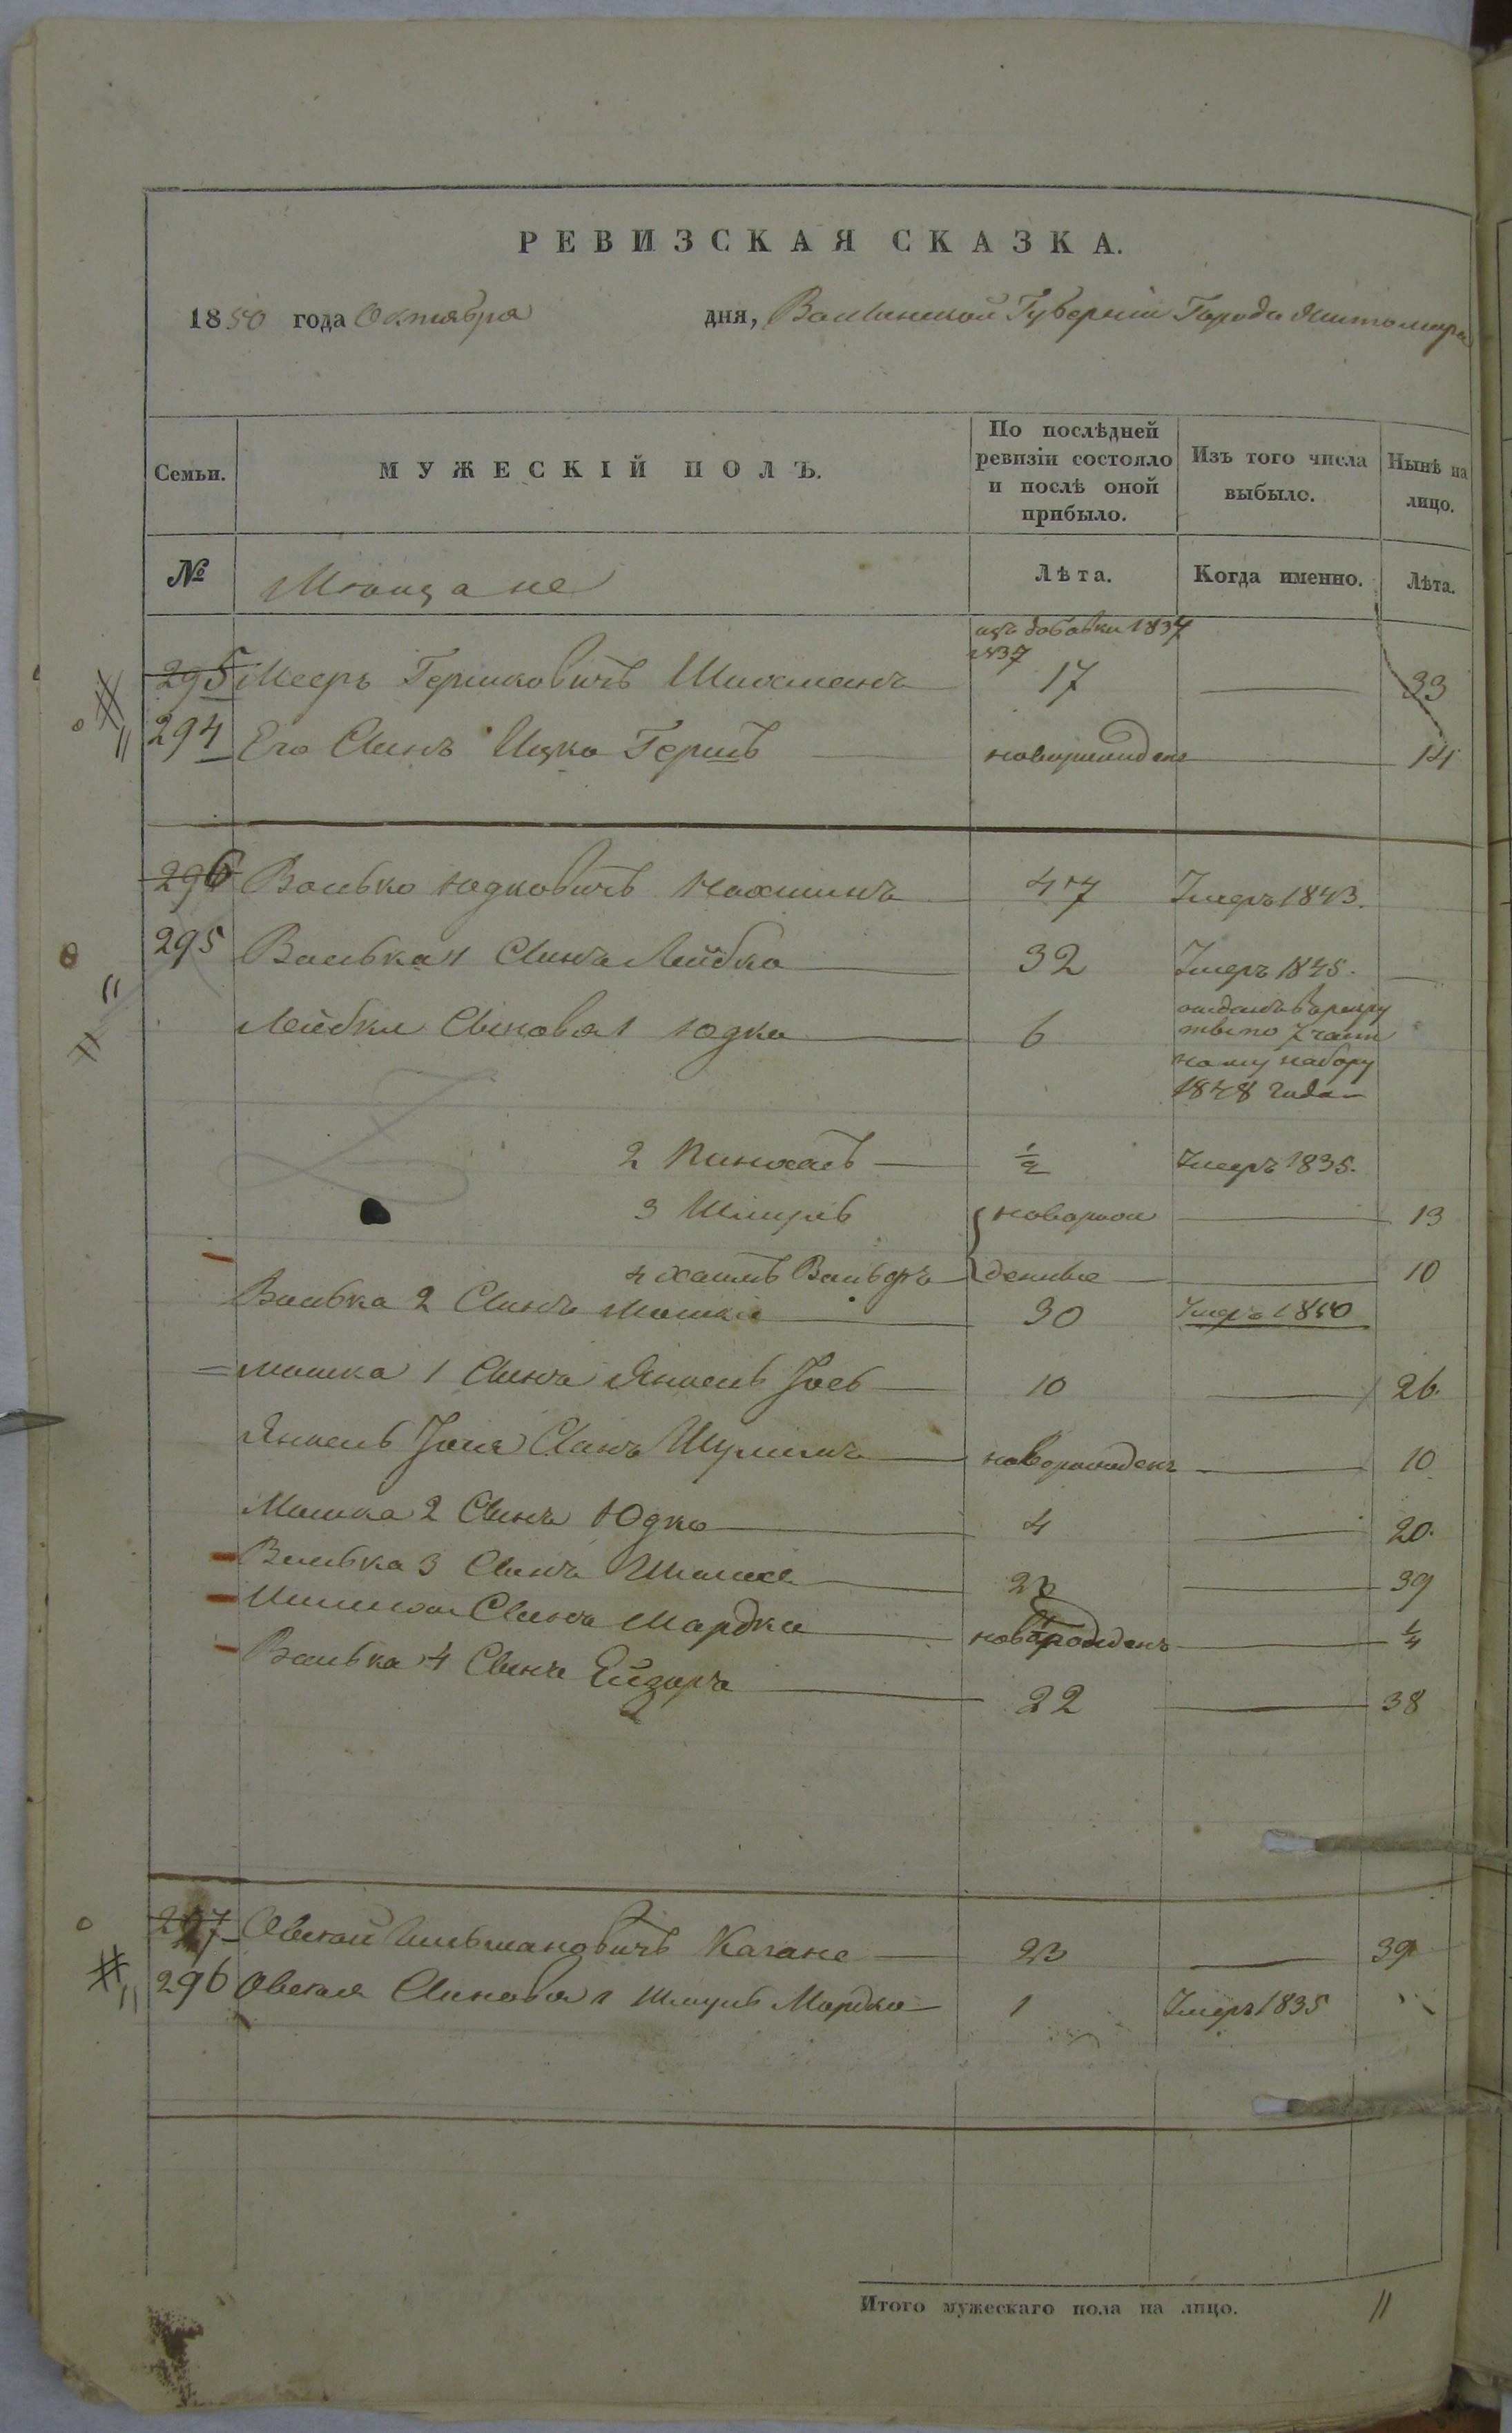 РЕВИЗСКАЯ СКАЗКА.
1850 года Октября дня, Волынской Губерніи Города Житомира
Семьи. МУЖЕСКІЙ ПОЛЪ. По послѣдней ревизіи состояло и послѣ оной прибыло. Изъ того числа выбыло. Нынѣ на лицо.
№ Мѣщане Лѣта. Когда именно. Лѣта.
изъ добавки 1837
295 Мееръ Гершковичъ 17 33
294 Его Сынъ Ицко Гершъ новорожденъ 14
296 Волько Юдковичъ 47 Умеръ 1843.
295 Волька 1 Сынъ Лейбко 32 Умеръ 1845.
Лейбки Сыновья 1 Юдко 6 отданъ в рекру
ты по 7 част
ному набору
1848 года
2 Пинхасъ ½ Умеръ 1835.
3 Шмуль новорож 13
4 Хаимъ Вольфъ денные 10
Волька 2 Сынъ Мошко 30 Умеръ 1850
Мошка 1 Сынъ Янкель 10 26.
Янкель Сынъ новорожденъ 10
Мошка 2 Сынъ Юдко 4 20.
Волька 3 Сынъ 23 39
Сынъ Мордко новорожденъ ¼
Волька 4 Сынъ 22 38
297 Овсей Кагане 23 39
296 Овсея Сыновья 1 Шмуль Мордко 1 Умеръ 1835
Итого мужескаго пола на лицо. 11